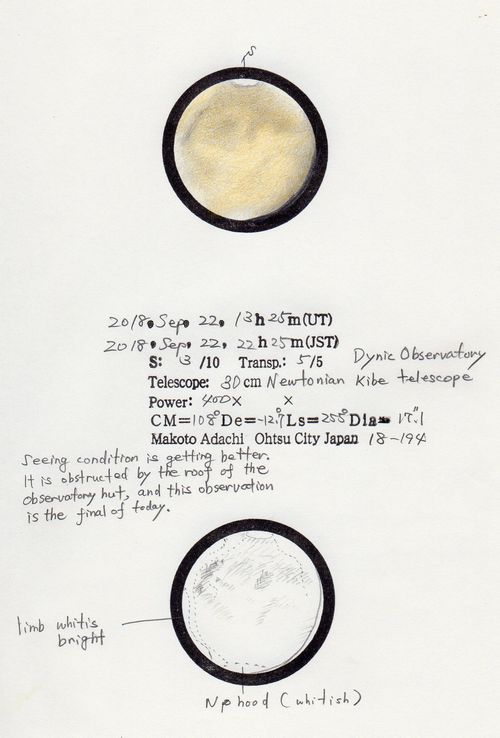 S
2018, Sep, 22, 13h 25m (UT)
2018, Sep, 22, 22h 25m (JST)
S: 3 /10 Transp.: 5/5 Dynic Observatory
Telescope: 30 cm Newtonian Kibe telescope
Power: 400× ×
CM=108° De=-12.°7 Ls=255° Dia= 17".1
Makoto Adachi Ohtsu City Japan 18-194
Seeing condition is getting better.
It is obstructed by the roof of the
observatory hut, and this observation
is the final of today.
limb whitis
bright
Np hood (whitish)